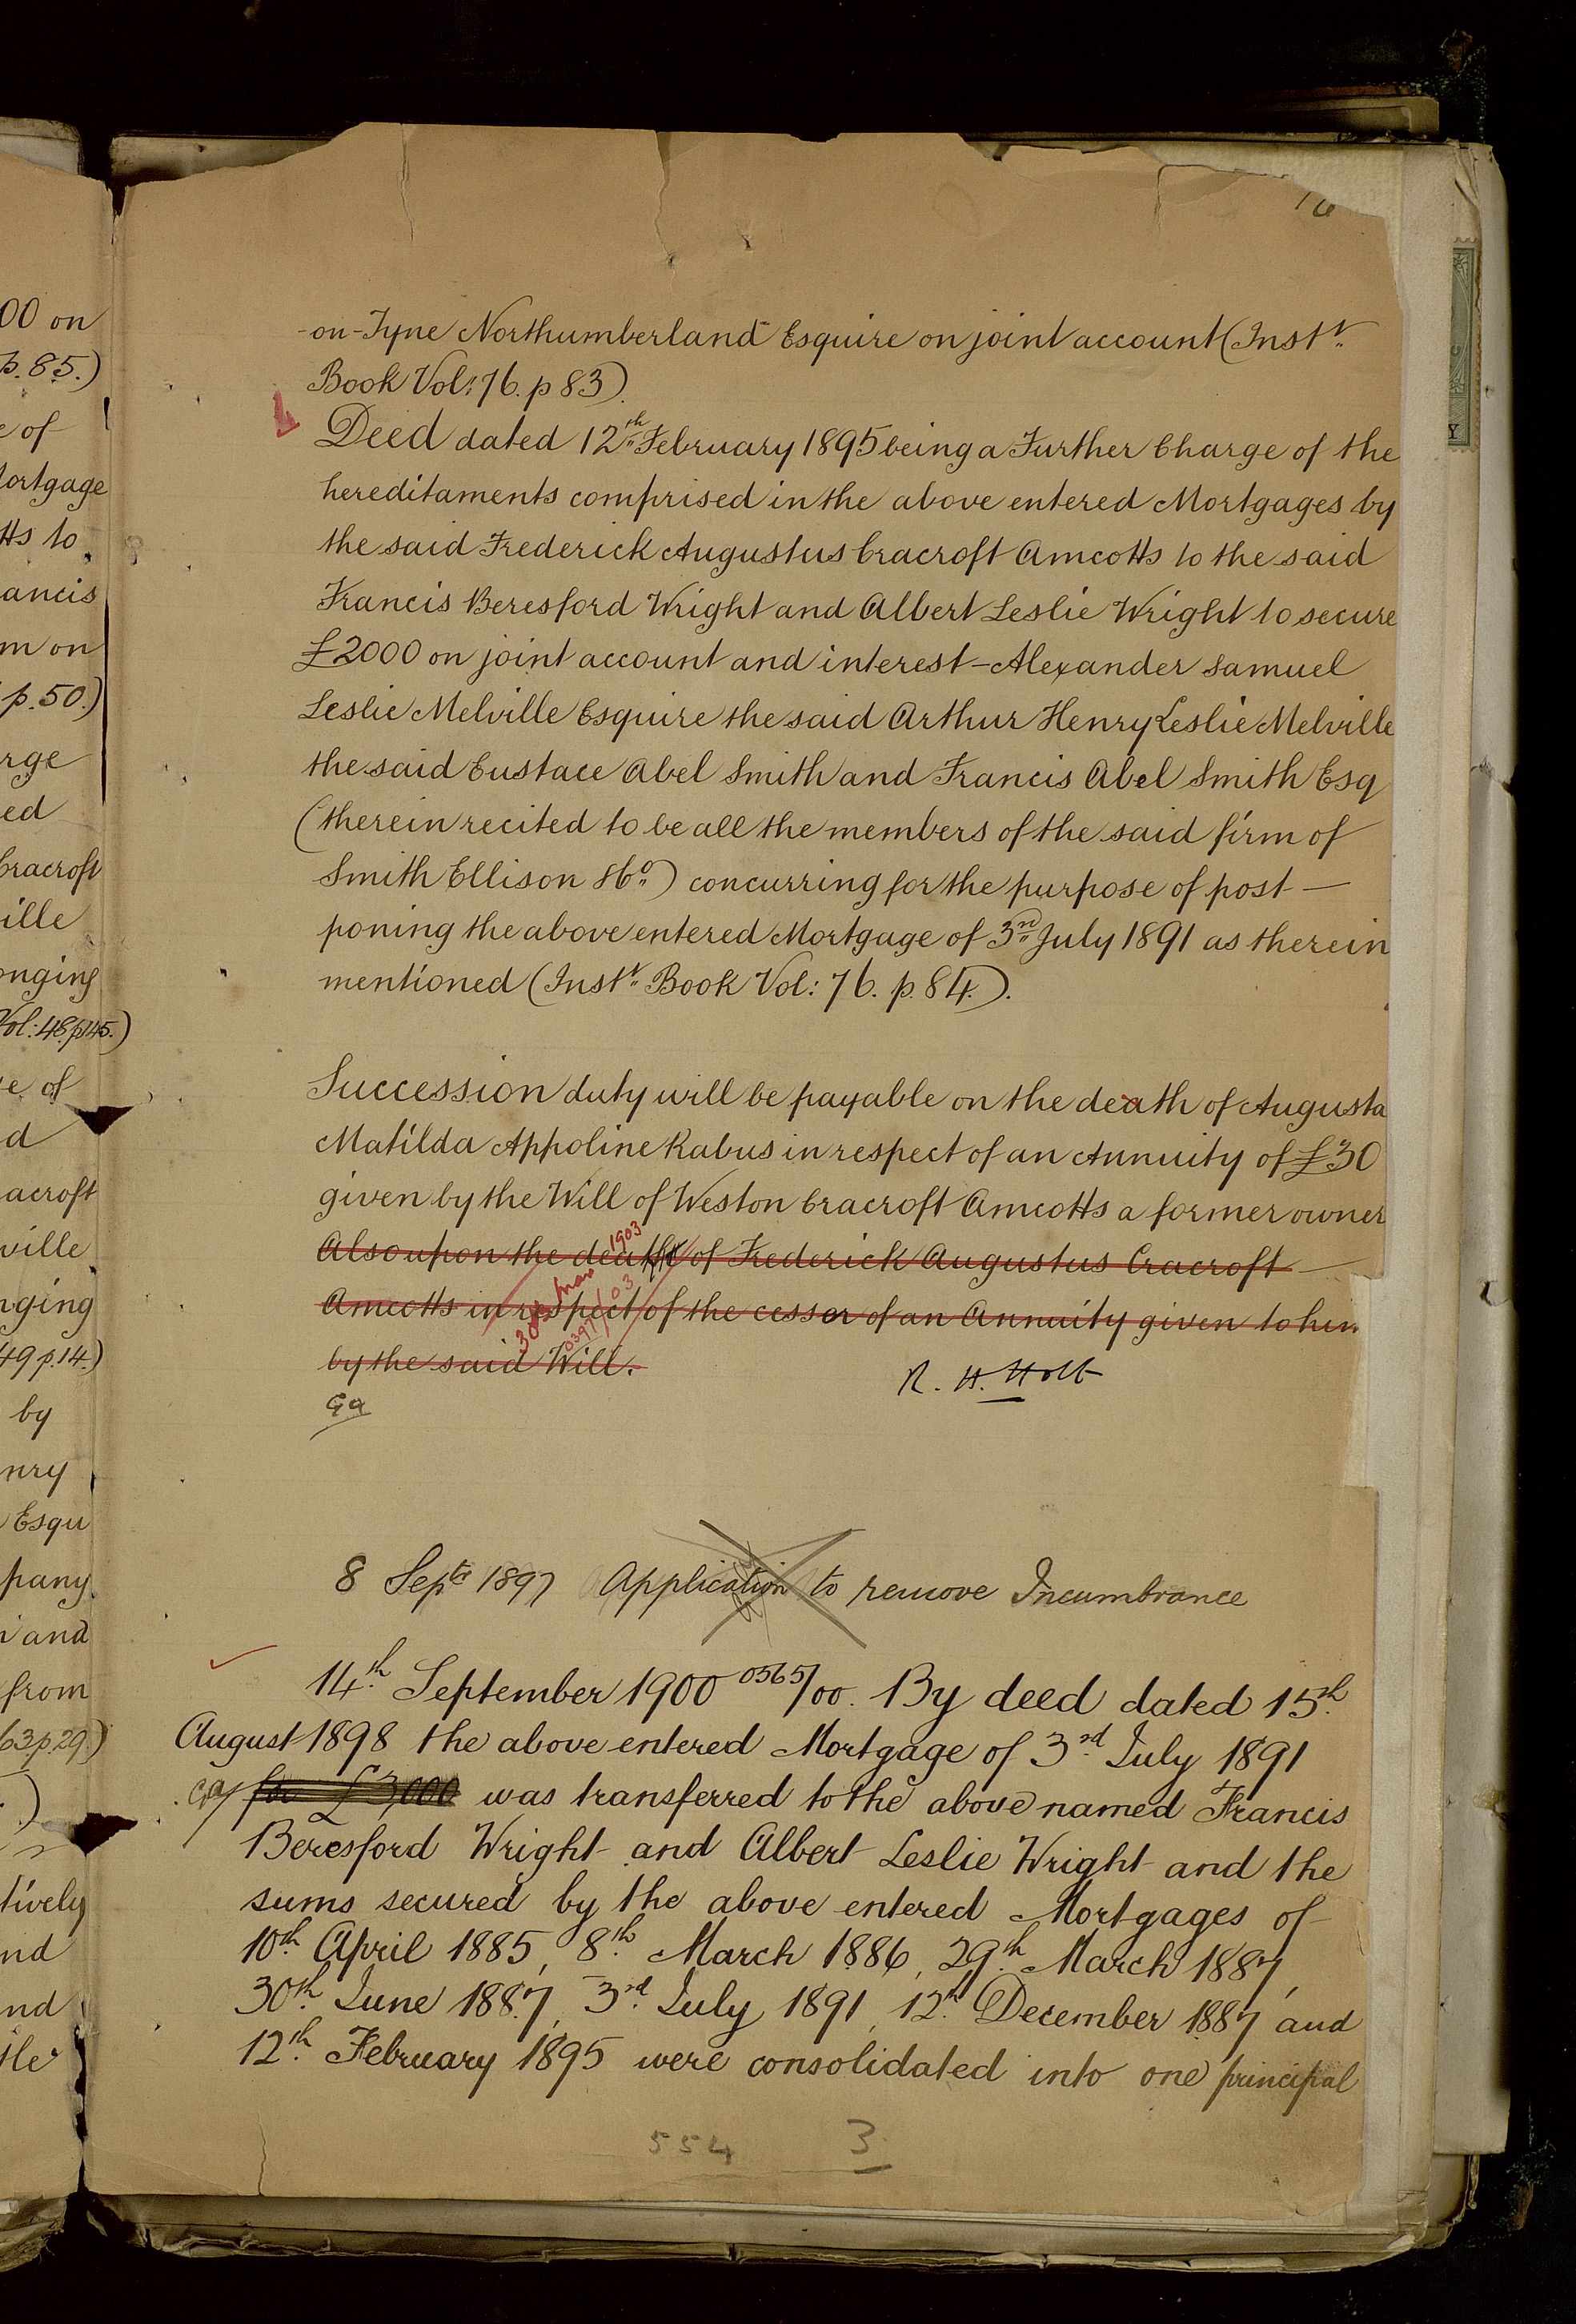 00 on
p. 85.)
e of
ortgage
tts to
ancis
m on
p. 50.)
rge
ed
Cracroft
ille
onging
Vol: 48 p 145.)
e of
d
acroft
ville
nging
49 p. 14.)
by
nry
Esqu
pany
and
from
63. p. 29.)
tively
nd
nd
16
-on-Tyne Northumberland Esquire on joint account (Instt.
Book Vol: 76. p 83).
Deed dated 12th February 1895 being a Further Charge of the
hereditaments comprised in the above entered Mortgages by
the said Frederick Augustus Cracroft Amcotts to the said
Francis Beresford Wright and Albert Leslie Wright to secure
£2000 on joint account and interest - Alexander Samuel
Leslie Melville Esquire the said Arthur Henry Leslie Melville
the said Eustace Abel Smith and Francis Abel Smith Esq
(therein recited to be all the members of the said firm of
Smith Ellison & Co.) concurring for the purpose of post —
poning the above entered Mortgage of 3rd July 1891 as therein
mentioned (Instt. Book Vol: 76. p. 84.).
Succession duty will be payable on the death of Augusta
Matilda Appoline Rabus in respect of an Annuity of £30
given by the Will of Weston Cracroft Amcotts a former owner
Also upon the death of Frederick Augustus Cracroft —
Amcotts in respect of the cesser of an Annuity given to him
by the said Will.
30th Mar 1903
0397/03
R. H. Holt
Ga
8 Septr 1897 Application to remove Incumbrance
14th September 1900 0565/00. By deed dated 15th
August 1898 the above entered Mortgage of 3rd July 1891
for £3,000 was transferred to the above named Francis
Beresford Wright and Albert Leslie Wright and the
sums secured by the above entered Mortgages of
10th April 1885, 8th March 1886, 29th March 1887,
30th June 1887, 3rd July 1891, 12th December 1887 and
12th February 1895 were consolidated into one principal
554 3